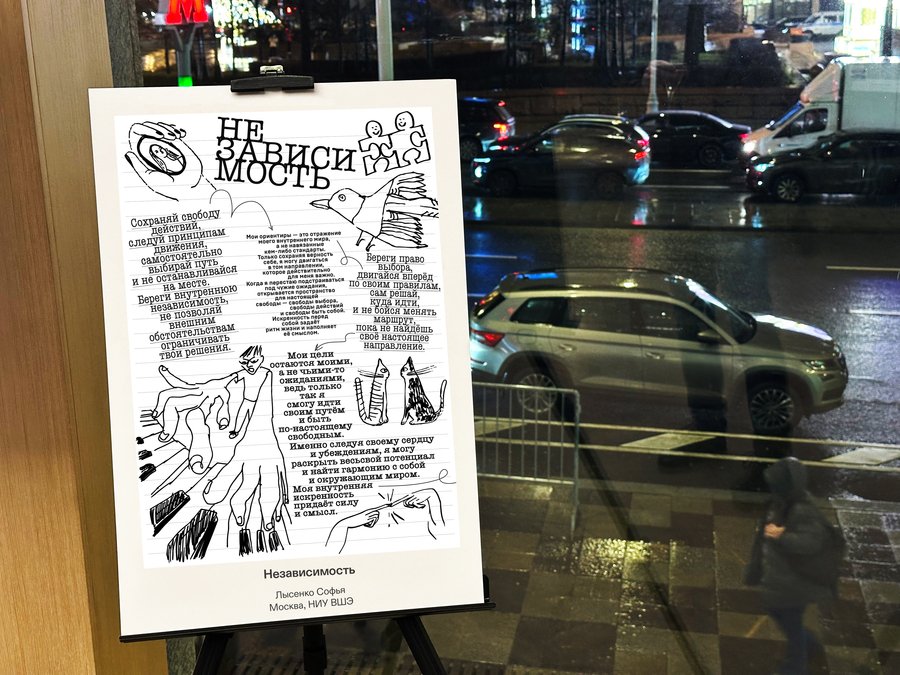 М
НЕ
ЗАВИСИ
МОСТЬ
Сохраняй свободу
действий,
следуй принципам
движения,
самостоятельно
выбирай путь
и не останавливайся
на месте.
Береги внутреннюю
независимость,
не позволяй
внешним
обстоятельствам
ограничивать
твои решения.
Мои ориентиры — это отражение
моего внутреннего мира,
а не навязанные
кем-либо стандарты.
Только сохраняя верность
себе, я могу двигаться
в том направлении,
которое действительно
для меня важно.
Когда я перестаю подстраиваться
под чужие ожидания,
открывается пространство
для настоящей
свободы — свободы выбора,
свободы действий
и свободы быть собой.
Искренность перед
собой задаёт
ритм жизни и наполняет
её смыслом.
Береги право
выбора,
двигайся вперёд
по своим правилам,
сам решай,
куда идти,
и не бойся менять
маршрут,
пока не найдёшь
своё настоящее
направление.
Мои цели
остаются моими,
а не чьими-то
ожиданиями,
ведь только
так я
смогу идти
своим путём
и быть
по-настоящему
свободным.
Именно следуя своему сердцу
и убеждениям, я могу
раскрыть весьсвой потенциал
и найти гармонию с собой
и окружающим миром.
Моя внутренняя
искренность
придаёт силу
и смысл.
Независимость
Лысенко Софья
Москва, НИУ ВШЭ